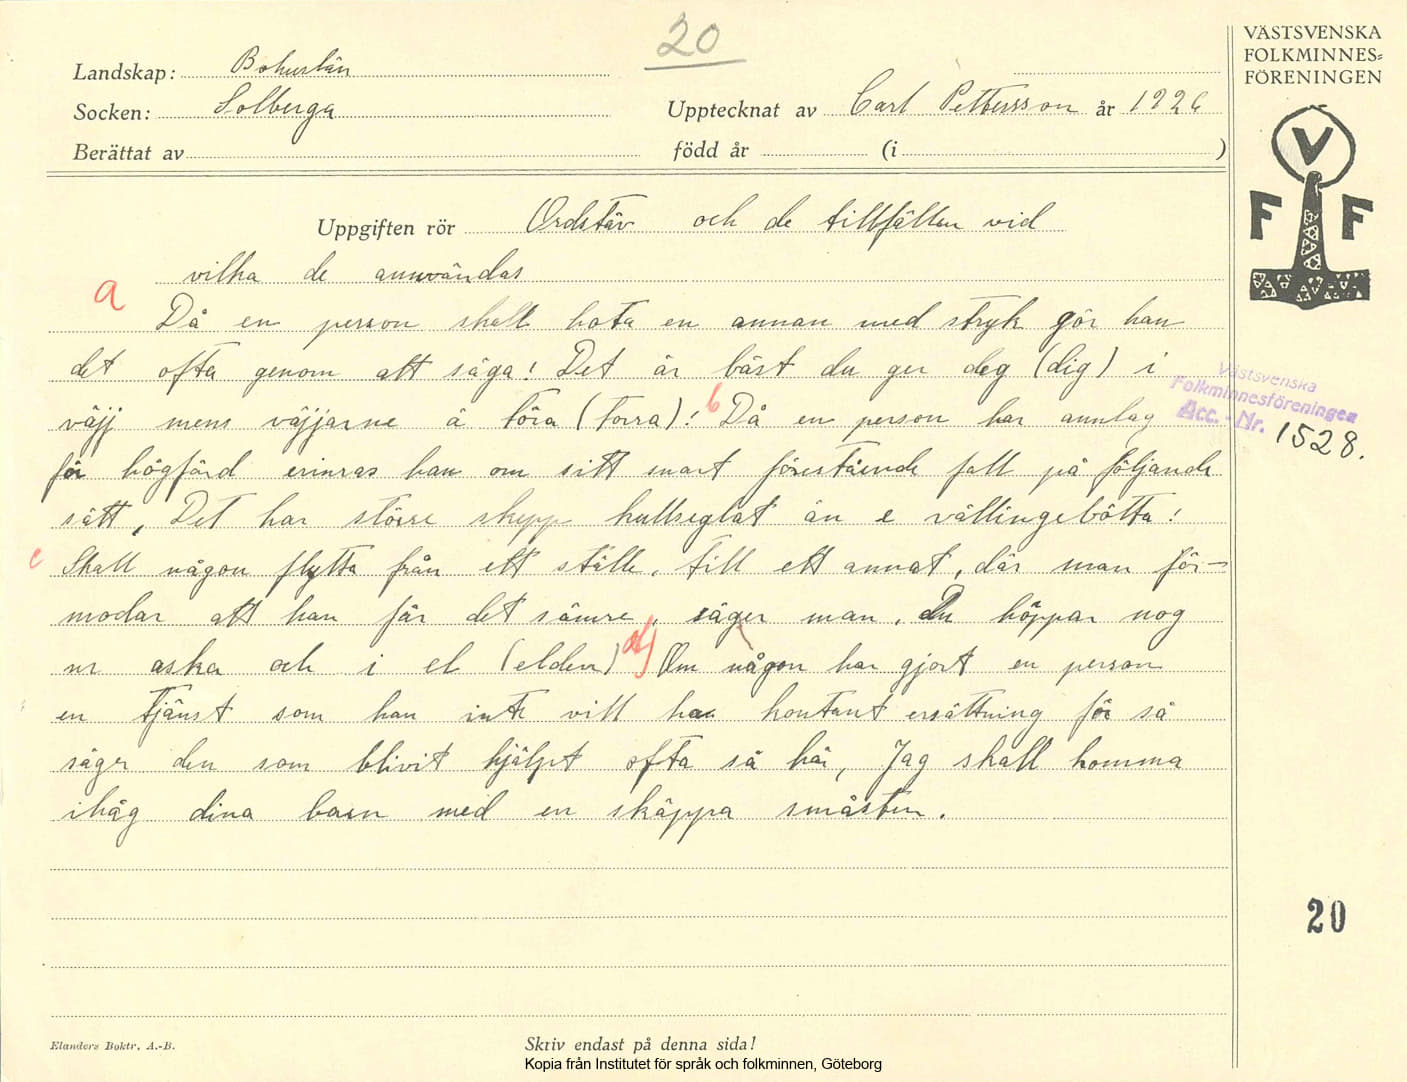 20
VÄSTSVENSKA
FOLKMINNES=
FÖRENINGEN
Landskap: Bohuslän
Socken: Solberga
Upptecknat av Carl Pettersson år 1926
Berättat av
född år (i )
V
F F
Uppgiften rör Ordstäv och de tillfällen vid
vilka de användas
a
Då en person skall hota en annan med stryk gör han
det ofta genom att säga! Det är bäst du ger deg (dig) i
väjj mens väjjarne ä töra (torra)! b Då en person har anlag
för högfärd erinras han om sitt snart förestående fall på följande
sätt, Det har större skepp kullseglat än e vällingebötta!
c Skall någon flytta från ett ställe, till ett annat, där man för-
modar att han får det sämre, säger man, Du höppar nog
ur aska och i el (elden) d) Om någon har gjort en person
en tjänst som han inte vill ha kontant ersättning för så
säger den som blivit hjälpt ofta så här, Jag skall komma
ihåg dina barn med en skäppa småsten.
Västsvenska
Folkminnesföreningen
Acc. - Nr. 1528.
20
Elanders Boktr. A.-B.
Skriv endast på denna sida!
Kopia från Institutet för språk och folkminnen, Göteborg